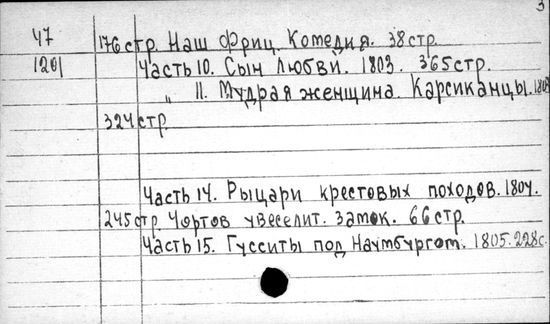 3
47 176 стр. Наш Фриц. Комедия. 38 стр.
1201 Часть 10. Сын Любви. 1803. 365 стр.
" 11. Мудрая женщина. Карсиканцы. 1803
324 стр.
Часть 14. Рыцари крестовых походов. 1804.
245 стр. Чортов увеселит. замок. 66 стр.
Часть 15. Гусситы под Наумбургом. 1805. 228 с.